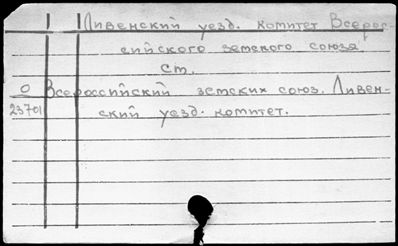 Ливенский уезд. комитет Всерос-
сийского земского союза
ст.
О Всероссийский земских союз. Ливен-
23701 ский уезд. комитет.